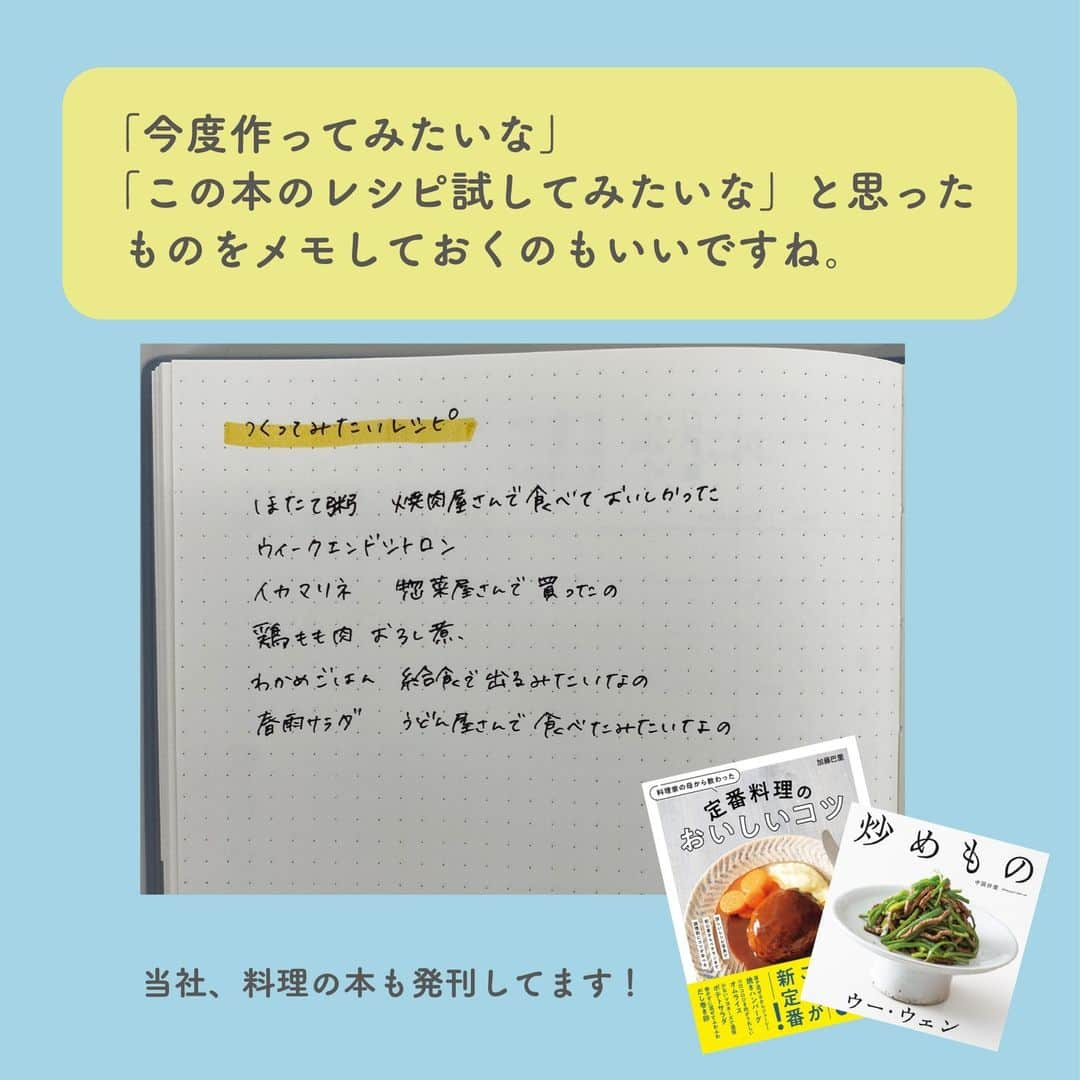 「今度作ってみたいな」
「この本のレシピ試してみたいな」と思った
ものをメモしておくのもいいですね。
つくってみたいレシピ
ほたて粥 焼肉屋さんで食べておいしかった
ウィークエンドシトロン
イカマリネ 惣菜屋さんで買ったの
鶏もも肉おろし煮、
わかめごはん 給食で出るみたいなの
春雨サラダ うどん屋さんで食べたみたいなの
料理家の母から教わった
加藤巴里
定番料理の
おいしいコツ
新定番が
！
焼きハンバーグ
オムライス
ポテトサラダ
だし巻き卵
炒めもの
ウー・ウェン
当社、料理の本も発刊してます！